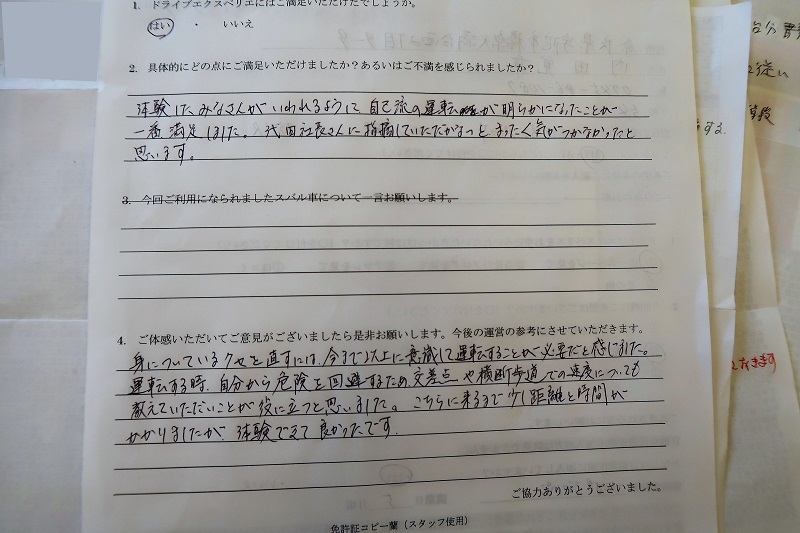 1. ドライブエクスペリエにはご満足いただけたでしょうか。
はい ・ いいえ
2. 具体的にどの点にご満足いただけましたか？あるいはご不満を感じられましたか？
体験したみなさんがいわれるように 自己流の運転が明らかになったことが
一番満足しました。 浅田社長さんに指摘していただかなっと まったく気がつかなかったと
思います。
3. 今回ご利用になられましたスバル車について一言お願いします。
4. ご体感いただいてご意見がございましたら是非お願いします。今後の運営の参考にさせていただきます。
身についているクセを直すには、今まで以上に意識して運転することが必要だと感じました。
運転する時、自分から危険を回避するため 交差点や横断歩道での速度についても
教えていただいことが役に立つと思いました。 こちらに来るまで少し距離と時間が
かかりましたが 体験できて 良かったです。
ご協力ありがとうございました。
免許証コピー蘭（スタッフ使用）
従い
する。
きます